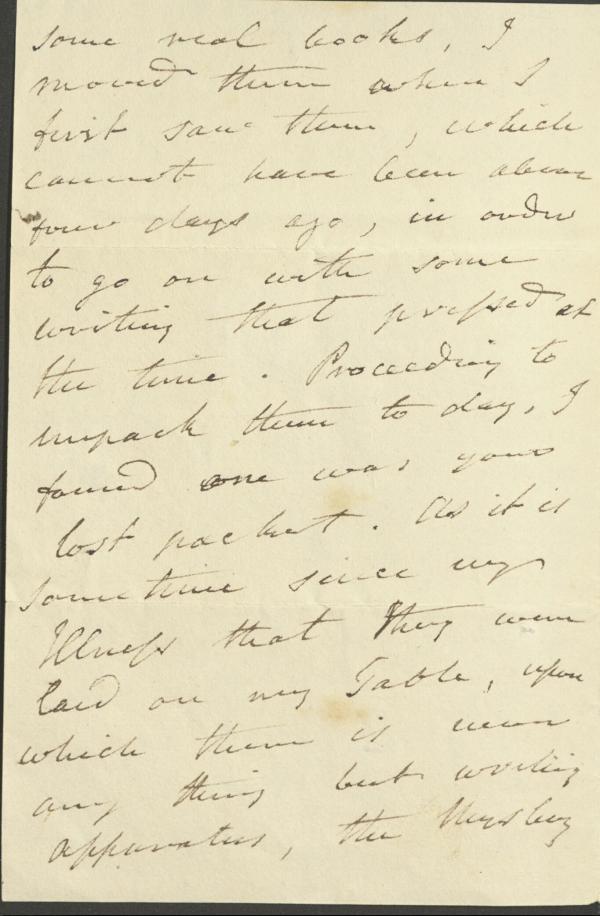 some real books, I
moved them when I
first saw them, which
cannot have been above
four days ago, in order
to go on with some
writing that pressed at
the time. Proceeding to
unpack them to day, I
found one was your
lost packet. As it is
some time since my
Illness that they were
laid on my Table, upon
which there is never
any thing but writing
apparatus, the Mystery